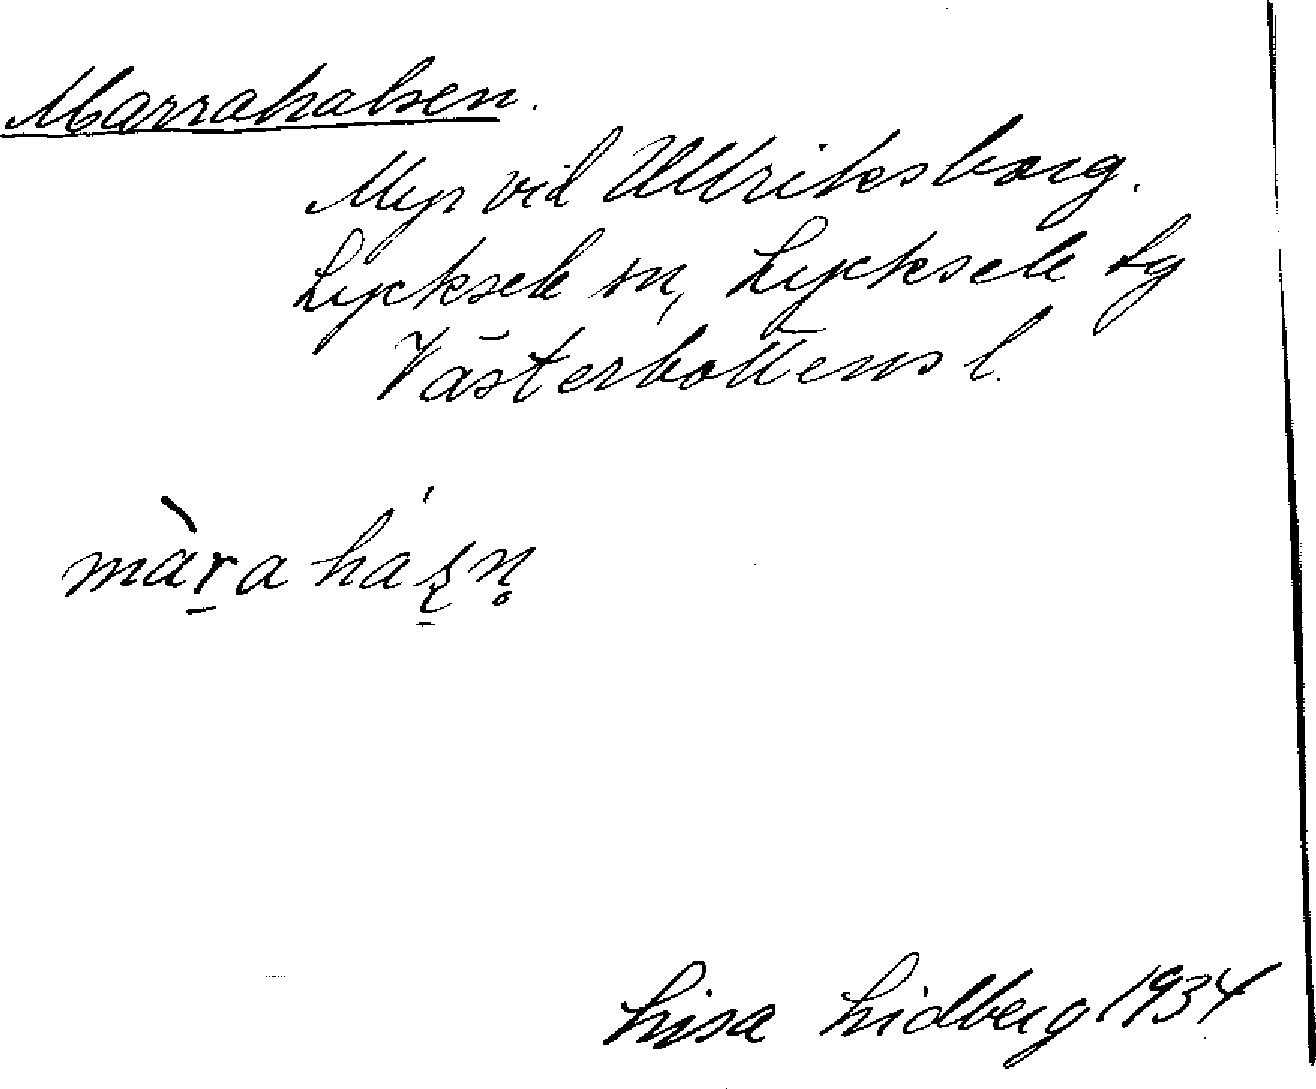 Marrahalsen.
Myr vid Ullriksborg.
Lycksele sn, Lycksele tg
Västerbottens l.
màr̠a há
Lisa Lidberg 1934